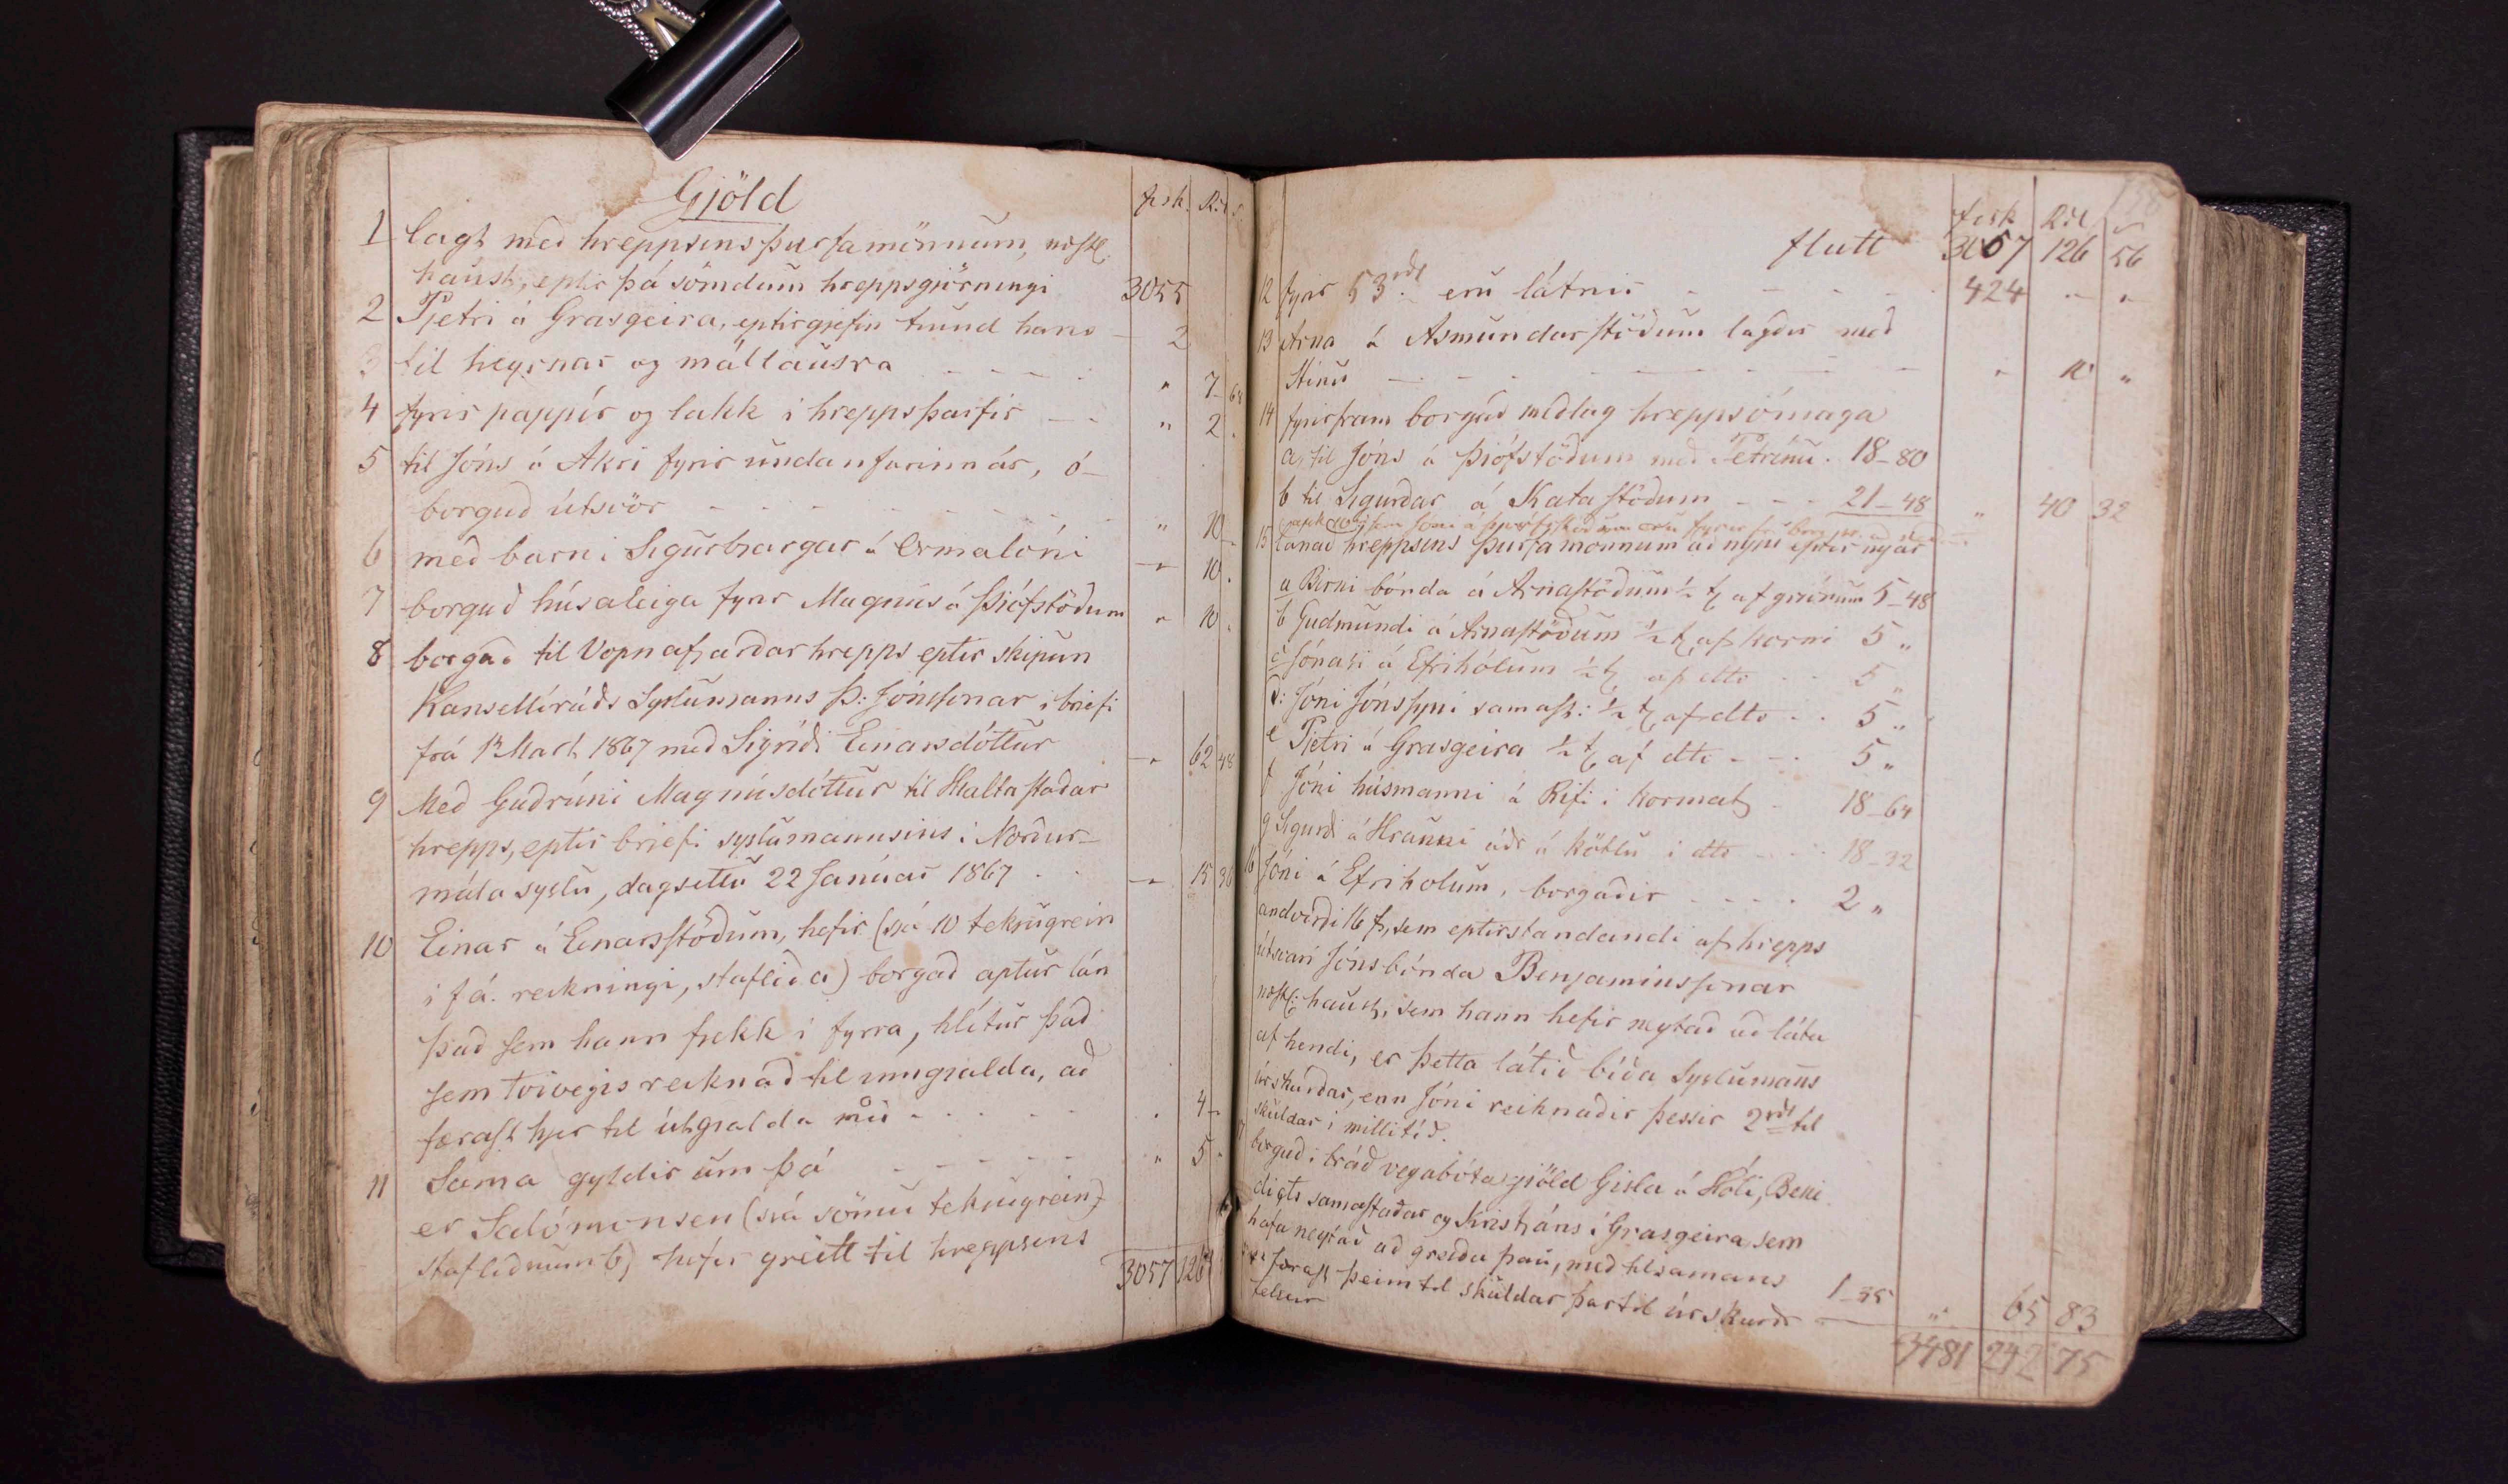 Gjöld fisk. Rd s
1 lagt með hreppsins þurfamönnum, næstl.
haust, eptir þá sömdum hreppsgjörningi 3055
2 Pjetri á Grasgeira, eptirgjefin tíund hans - 2
3 til heyrnar og mállausra - - - - " 7 68
4 fyrir pappír og lakk í hreppsþarfir - - " 2 .
5 til Jóns á Akri fyrir undanfarinn ár, ó-
borguð útsvör - - - - - - - " 10
6 með barni Sigurbjargar á Ormalóni - " 10 .
7 borguð húsaleiga fyrir Magnús á Þjófstöðum " 10 .
8 borgað til Vopnafjarðarhrepps eptir skipun
Kansellíráðs Sýslumanns Þ: Jónssonar í briefi
frá 12 Mart 1867 með Sigríði Einarsdóttur - " 62 48
9 Með Guðrúni Magnúsdóttur til Hjaltastaðar
hrepps, eptir briefi sýslumannsins í Norður-
múla sýslu, dagsettu 22 Janúar 1867 . . - " 15 36
10 Einar á Einarsstöðum, hefir (sjá 10 tekjugrein
í f á. reikningi, staflið a) borgað aptur lán
það sem hann fjekk í fyrra, hlítur það
sem tvívegis reiknað til inngjalda, að
færast hjer til útgjalda nú - - - - . 4 -
11 Sama gyldir um þá - - - - - " 5 "
er Salómonsen (sjá sömu tekjugrein,
stafliðnum b) hefir greitt til hreppsins
3057 126
fisk Rd s
flutt 3057 126 56
12 fyrir 53 rdl eru látnir - - - - 424 - "
13 Arna á Asmundarstöðum lagðir með
Stínu - - - - - - - - " 10 "
14 fyrirfram borgað meðlag hreppsómaga
a, til Jóns á Þjófstöðum með Petrínu . 18-80
b til Sigurðar á Katastöðum - - - 21-48 " 40 32
15 lánað hreppsins þurfamönnum að nýju eptir nyár
a Birni bónda á Arnastöðum ½ t af grjónum 5-48
b Guðmundi á Arnastöðum ½ t af korni 5 "
c Jónasi á Efrihólum ½ t af dtto - - 5 "
d: Jóni Jónssyni samast: ½ t af dtto - . 5 "
e Pjetri á Grasgeira ½ t af dtto - - - 5 "
f Jóni húsmanni á Rifi í kornmat - 18-64
g Sigurði á Hrauni áðr á Kötlu í dtto - - - 18-32
16 Jóni á Efriholum, borgaðir - - - - 2 "
andvirði 16 f, sem eptirstandandi af hrepps
útsvari Jóns bónda Benjaminssonar
næstl: haust, sem hann hefir neytað að láta
af hendi, er þetta látið bíða Syslumans
úrskurðar, enn Jóni reiknaðir þessir 2 rdl til
skuldar í millitíð.
17 borguð í bráð vegabótagjöld Gisla á Hóli, Bene
digts samastaðar og Kristjáns í Grasgeira, sem
hafa neytað að greiða þau, með tilsamans 1-35
færast þeim til skuldar þar til úrskurðr
fellur " 65 83
3481 242 75